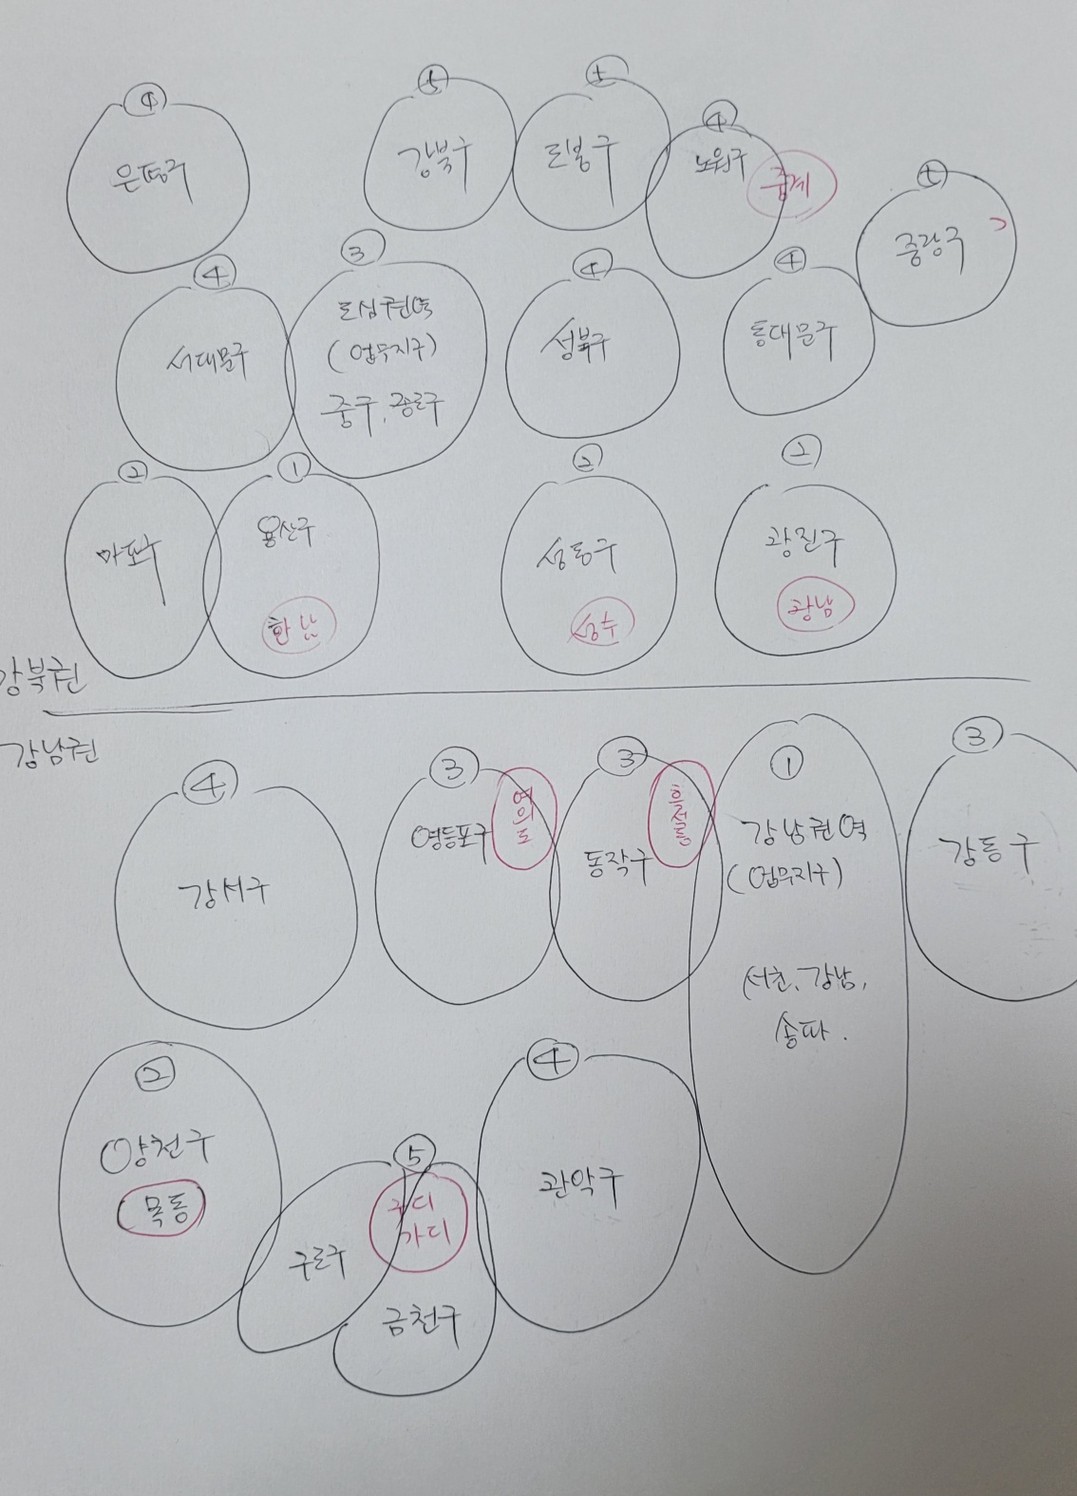 ④
은평구
⑤
강북구
⑤
도봉구
④
노원구
중계
⑤
중랑구
④
서대문구
③
도심권역
(업무지구)
중구, 종로구
④
성북구
④
동대문구
②
마포구
①
용산구
한남
②
성동구
성수
②
광진구
광남
강북권
강남권
④
강서구
③
영등포구
여의도
③
동작구
흑석동
①
강남권역
(업무지구)
서초, 강남,
송파.
③
강동구
②
양천구
목동
⑤
구로구
구디
가디
금천구
④
관악구